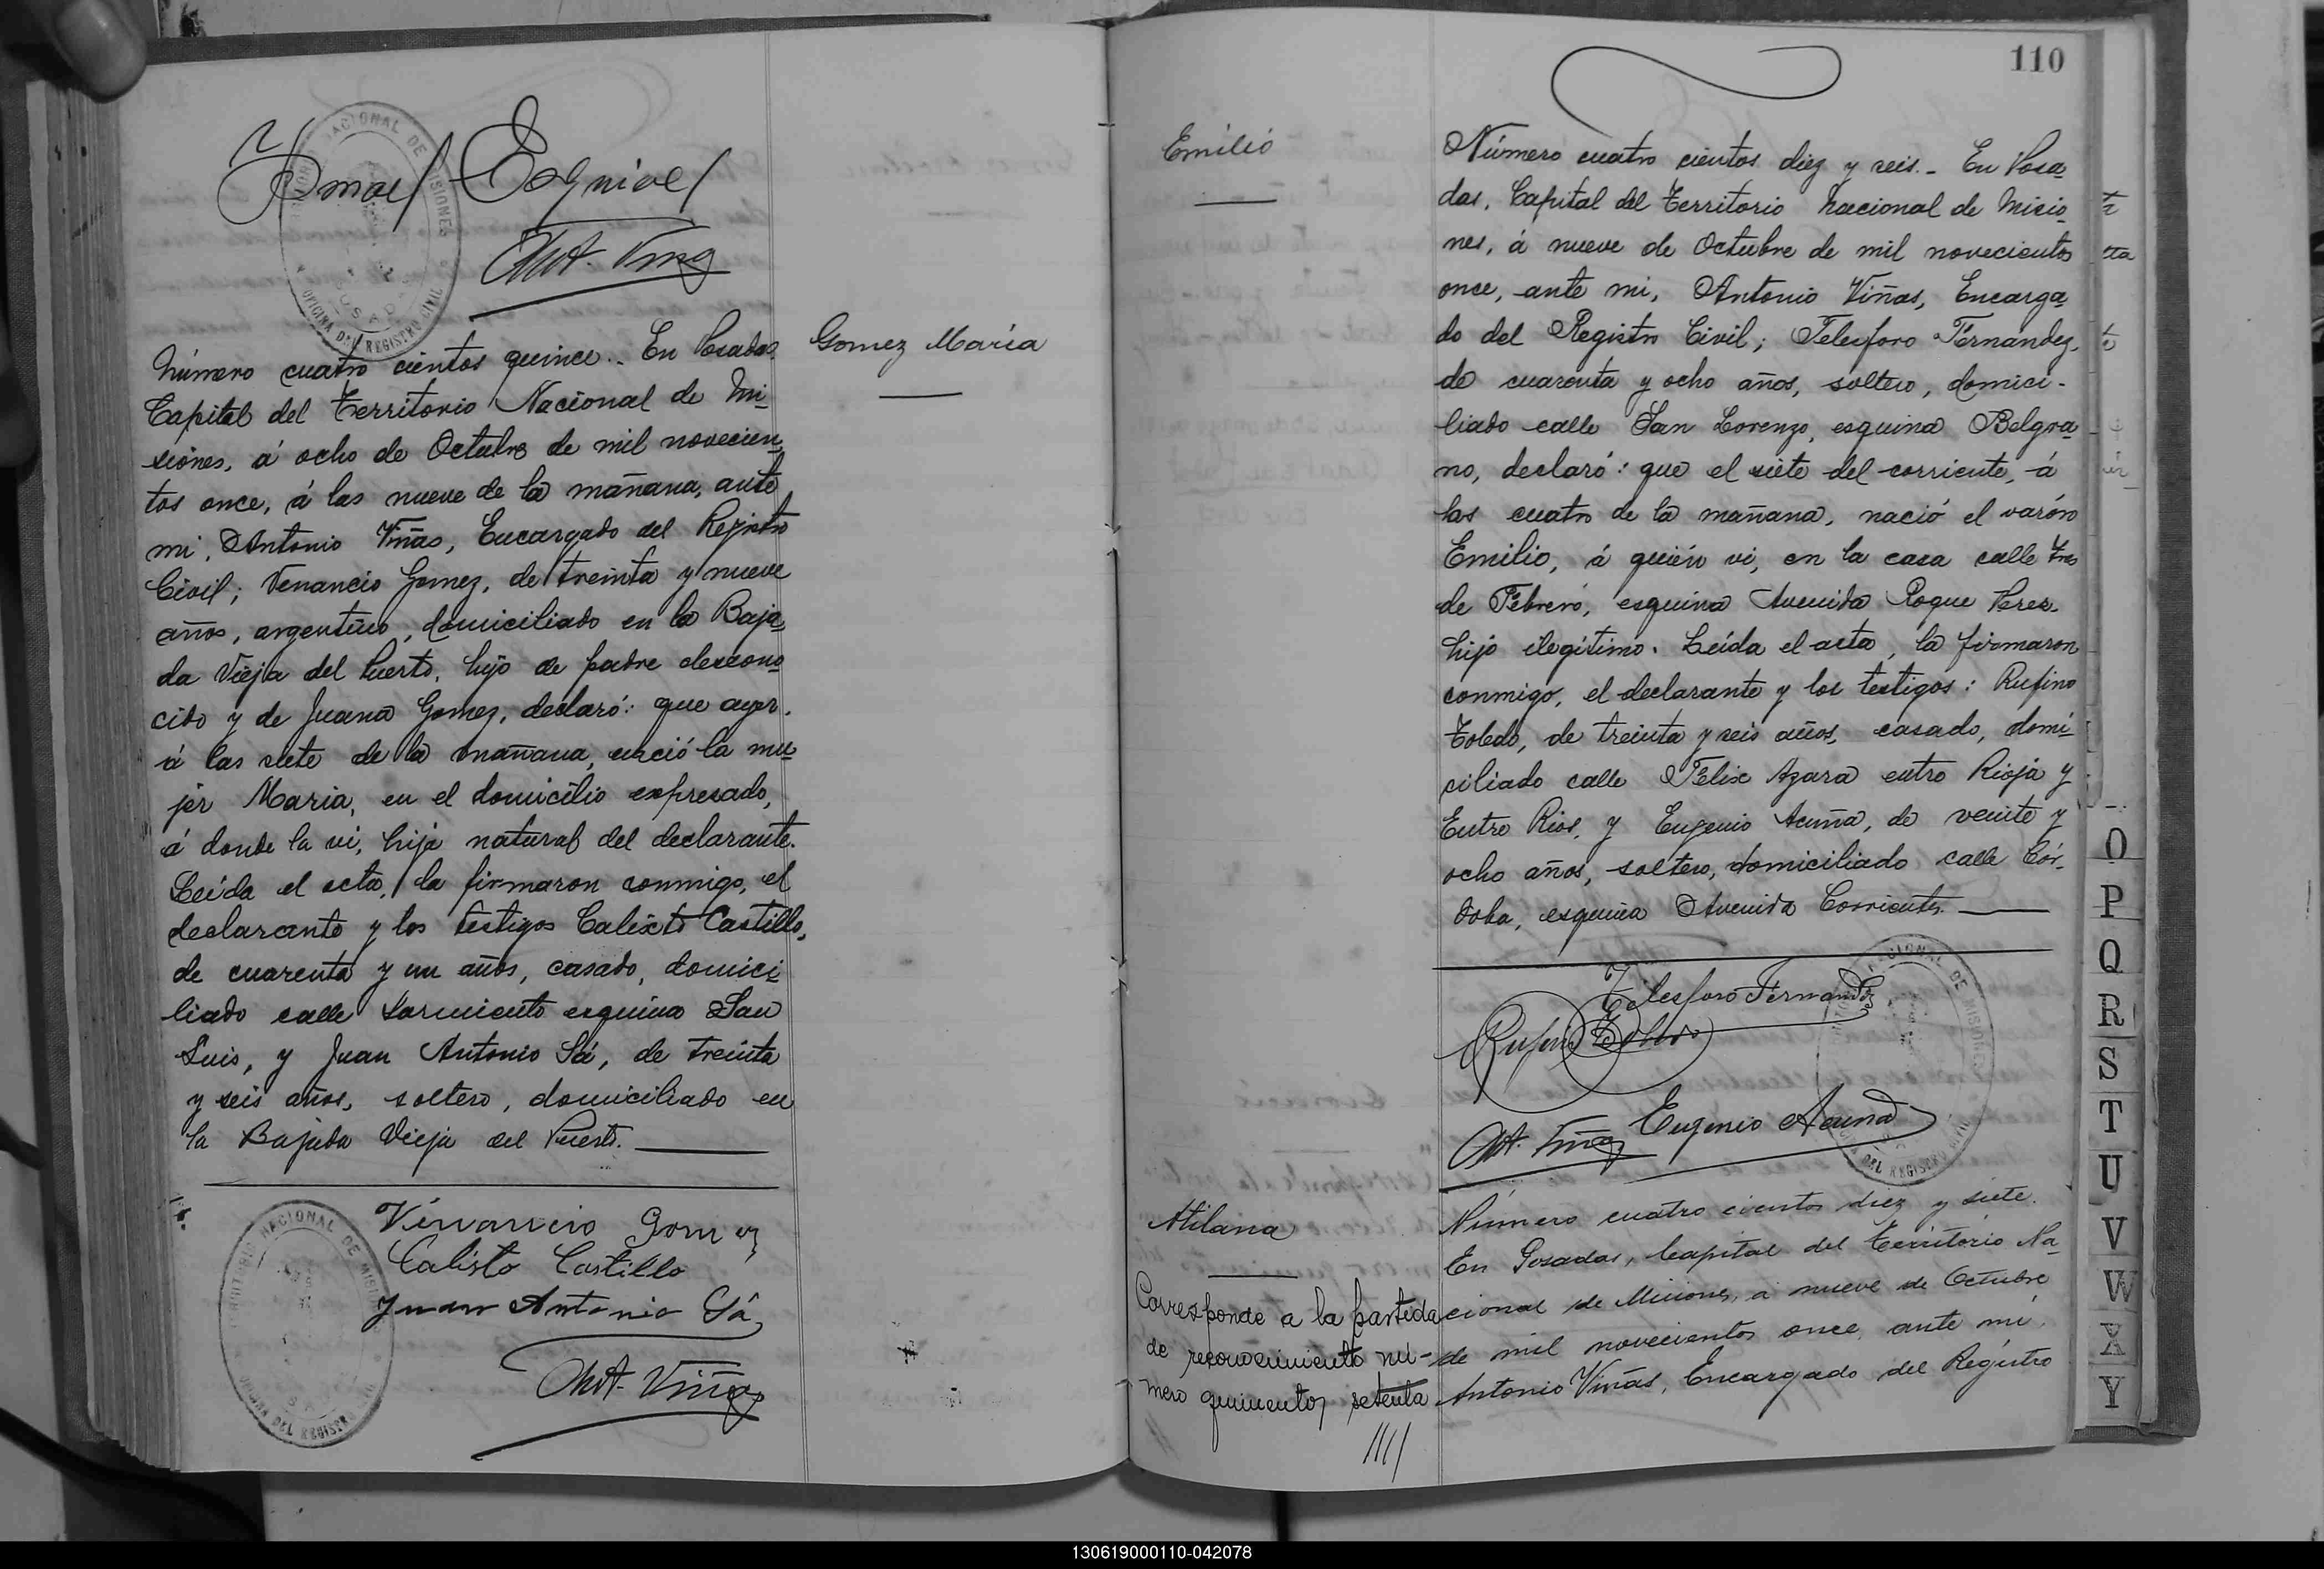 Ismael Esquivel
Ant. Viñas
TERRITORIO NACIONAL DE MISIONES
POSADAS
OFICINA DEL REGISTRO CIVIL
Gomez María
Número cuatro cientos quince.. En Posadas
Capital del Territorio Nacional de Mi-
siones, á ocho de Octubre de mil novecien-
tos once, á las nueve de la mañana, ante
mi, Antonio Viñas, Encargado del Registro
Civil; Venancio Gomez, de treinta y nueve
años, argentino, domiciliado en la Baja-
da Vieja del Puerto, hijo de padre descono-
cido y de Juana Gomez, declaró: que ayer,
á las siete de la mañana, nació la mu-
jer Maria, en el domicilio expresado,
á donde la vi, hija natural del declarante.
Leída el acta, la firmaron conmigo, el
declarante y los testigos Calixto Castillo,
de cuarenta y un años, casado, domici-
liado calle Sarmiento esquina San
Luis, y Juan Antonio Sá, de treinta
y seis años, soltero, domiciliado en
la Bajada Vieja del Puerto.
Venancio Gomez
Calisto Castillo
Juan Antonio Sá
Ant. Viñas
TERRITORIO NACIONAL DE MISIONES
OFICINA DEL REGISTRO CIVIL
110
Emilio
Número cuatro cientos diez y seis.- En Posa-
das, Capital del Territorio Nacional de Misio-
nes, á nueve de Octubre de mil novecientos
once, ante mi, Antonio Viñas, Encarga-
do del Registro Civil; Telesforo Fernandez,
de cuarenta y ocho años, soltero, domici-
liado calle San Lorenzo, esquina Belgra-
no, declaró: que el siete del corriente, á
las cuatro de la mañana, nació el varón
Emilio, á quién vi, en la casa calle tres
de Febrero, esquina Avenida Roque Perez,
hijo ilegítimo. Leída el acta, la firmaron
conmigo, el declarante y los testigos: Rufino
Toledo, de treinta y seis años, casado, domi-
ciliado calle Felix Azara entre Rioja y
Entre Rios, y Eugenio Acuña, de veinte y
ocho años, soltero, domiciliado calle Cór-
doba, esquina Avenida Corrientes.
Telesforo Fernandez
Rufino Toledo
Eugenio Acuña
Ant. Viñas
NACIONAL DE MISIONES
DEL REGISTRO CIVIL
Atilana
Corresponde a la partida
de reconocimiento nú-
mero quinientos setenta
Número cuatro cientos diez y siete.
En Posadas, Capital del Territorio Na-
cional de Misiones, a nueve de Octubre
de mil novecientos once, ante mi,
Antonio Viñas, Encargado del Registro
O
P
Q
R
S
T
U
V
W
X
Y
130619000110-042078